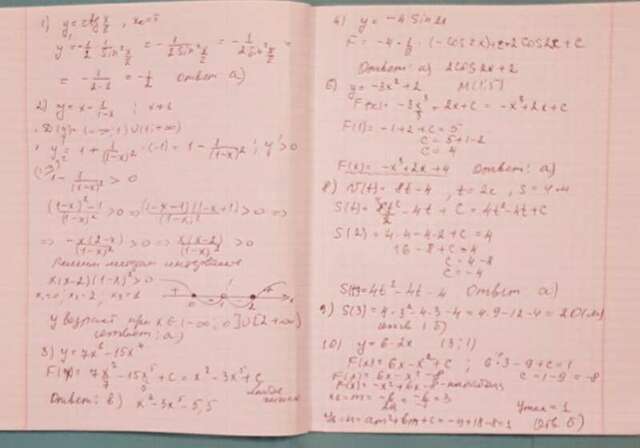 1) y = ctg x/2 , x₀ = π
y' = -1/2 · 1/sin² x/2 = -1/(2 sin² x/2) = -1/(2 sin² π/2) =
= -1/(2·1) = -1/2 ответ а)
2) y = x - 1/(1-x) ; x ≠ 1
D(y) = (-∞; 1) ∪ (1; +∞)
y' = 1 + 1/(1-x)² · (-1) = 1 - 1/(1-x)² ; y' > 0
1 - 1/(1-x)² > 0
((1-x)² - 1)/(1-x)² > 0 => (1-x-1)(1-x+1)/(1-x)² > 0 =>
=> -x(2-x)/(1-x)² > 0 => x(x-2)/(1-x)² > 0
Решим методом интервалов
x(x-2)(1-x)² > 0
x₁ = 0; x₂ = 2, x₃ = 1
+ - - + 0 1 2 x
y возраст при x ∈ (-∞; 0] ∪ [2 +∞)
ответ: а)
3) y = 7x⁶ - 15x⁴
F(x) = 7x⁷/7 - 15x⁵/5 + C = x⁷ - 3x⁵ + C
Ответ: в) x⁷ - 3x⁵ - 5,5
4) y = -4 sin 2x
F = -4 · 1/2 · (-cos 2x) + C = 2cos 2x + C
Ответ: а) 2cos 2x + 2
6) y = -3x² + 2 M(1; 5)
F(x) = -3x³/3 + 2x + C = -x³ + 2x + C
F(1) = -1 + 2 + C = 5
C = 5 + 1 - 2
C = 4
F(x) = -x³ + 2x + 4 Ответ: а)
8) V(t) = 8t - 4 , t = 2c , S = 4 м
S(t) = 8t²/2 - 4t + C = 4t² - 4t + C
S(2) = 4·4 - 4·2 + C = 4
16 - 8 + C = 4
C = 4 - 8
C = -4
S(t) = 4t² - 4t - 4 Ответ а)
9) S(3) = 4·3² - 4·3 - 4 = 4·9 - 12 - 4 = 20 (м)
ответ б)
10) y = 6 - 2x (3; 1)
F(x) = 6x - x² + C ; 6·3 - 9 + C = 1
F(x) = 6x - x² - 8 C = 1 - 9 = -8
F(x) = -x² + 6x - 8 - парабола
x₀ = m = -b/2a = -6/-2 = 3 y max = 1
y₀ = n = am² + bm + c = -9 + 18 - 8 = 1 (Отв. б)